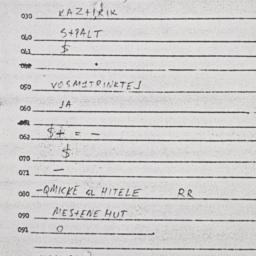 030 KAZ+IRIK
040 S+PALT
041 $
050 VOSM1TRINKTEJ
060 JA
062 $+ = -
$
070
071 -
080 -QMICKE a HITELE RR
090 MES+ENE HUT
091 O